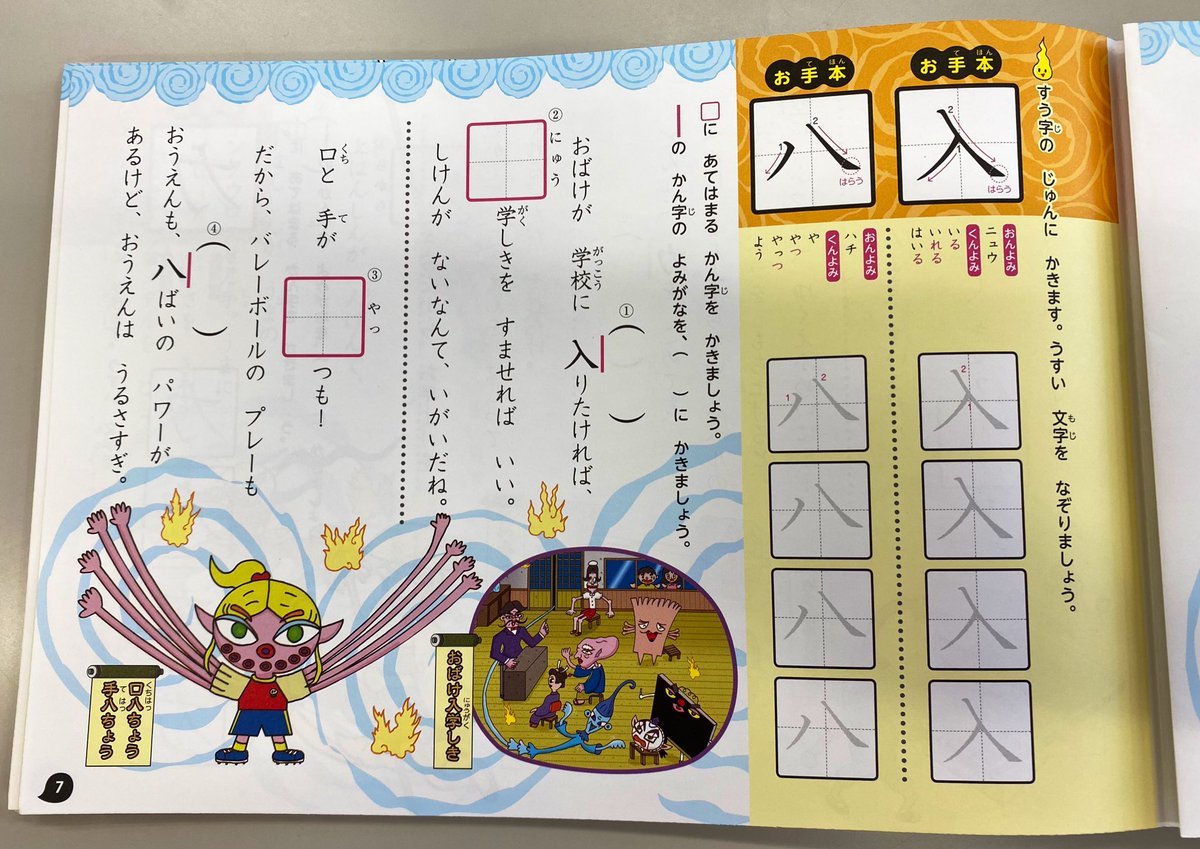 すう字の じゅんに かきます。うすい 文字を なぞりましょう。
じ
もじ
お手本
てほん
入
1
2
はらう
おんよみ
ニュウ
くんよみ
いる
いれる
はいる
入
1
2
入
入
入
お手本
てほん
八
1
2
はらう
おんよみ
ハチ
くんよみ
や
やつ
やっつ
よう
八
1
2
八
八
八
□に あてはまる かん字を かきましょう。
じ
―の かん字の よみがなを、( )に かきましょう。
じ
①( )
おばけが 学校に 入りたければ、
がっこう
②にゅう
□学しきを すませれば いい。
がく
しけんが ないなんて、いがいだね。
③やっ
口と 手が □つも!
くち
て
だから、バレーボールの プレーも
④( )
おうえんも、八ばいの パワーが
あるけど、おうえんは うるさすぎ。
おばけ入学しき
にゅうがく
口八ちょう
くちはっ
手八ちょう
てはっ
7